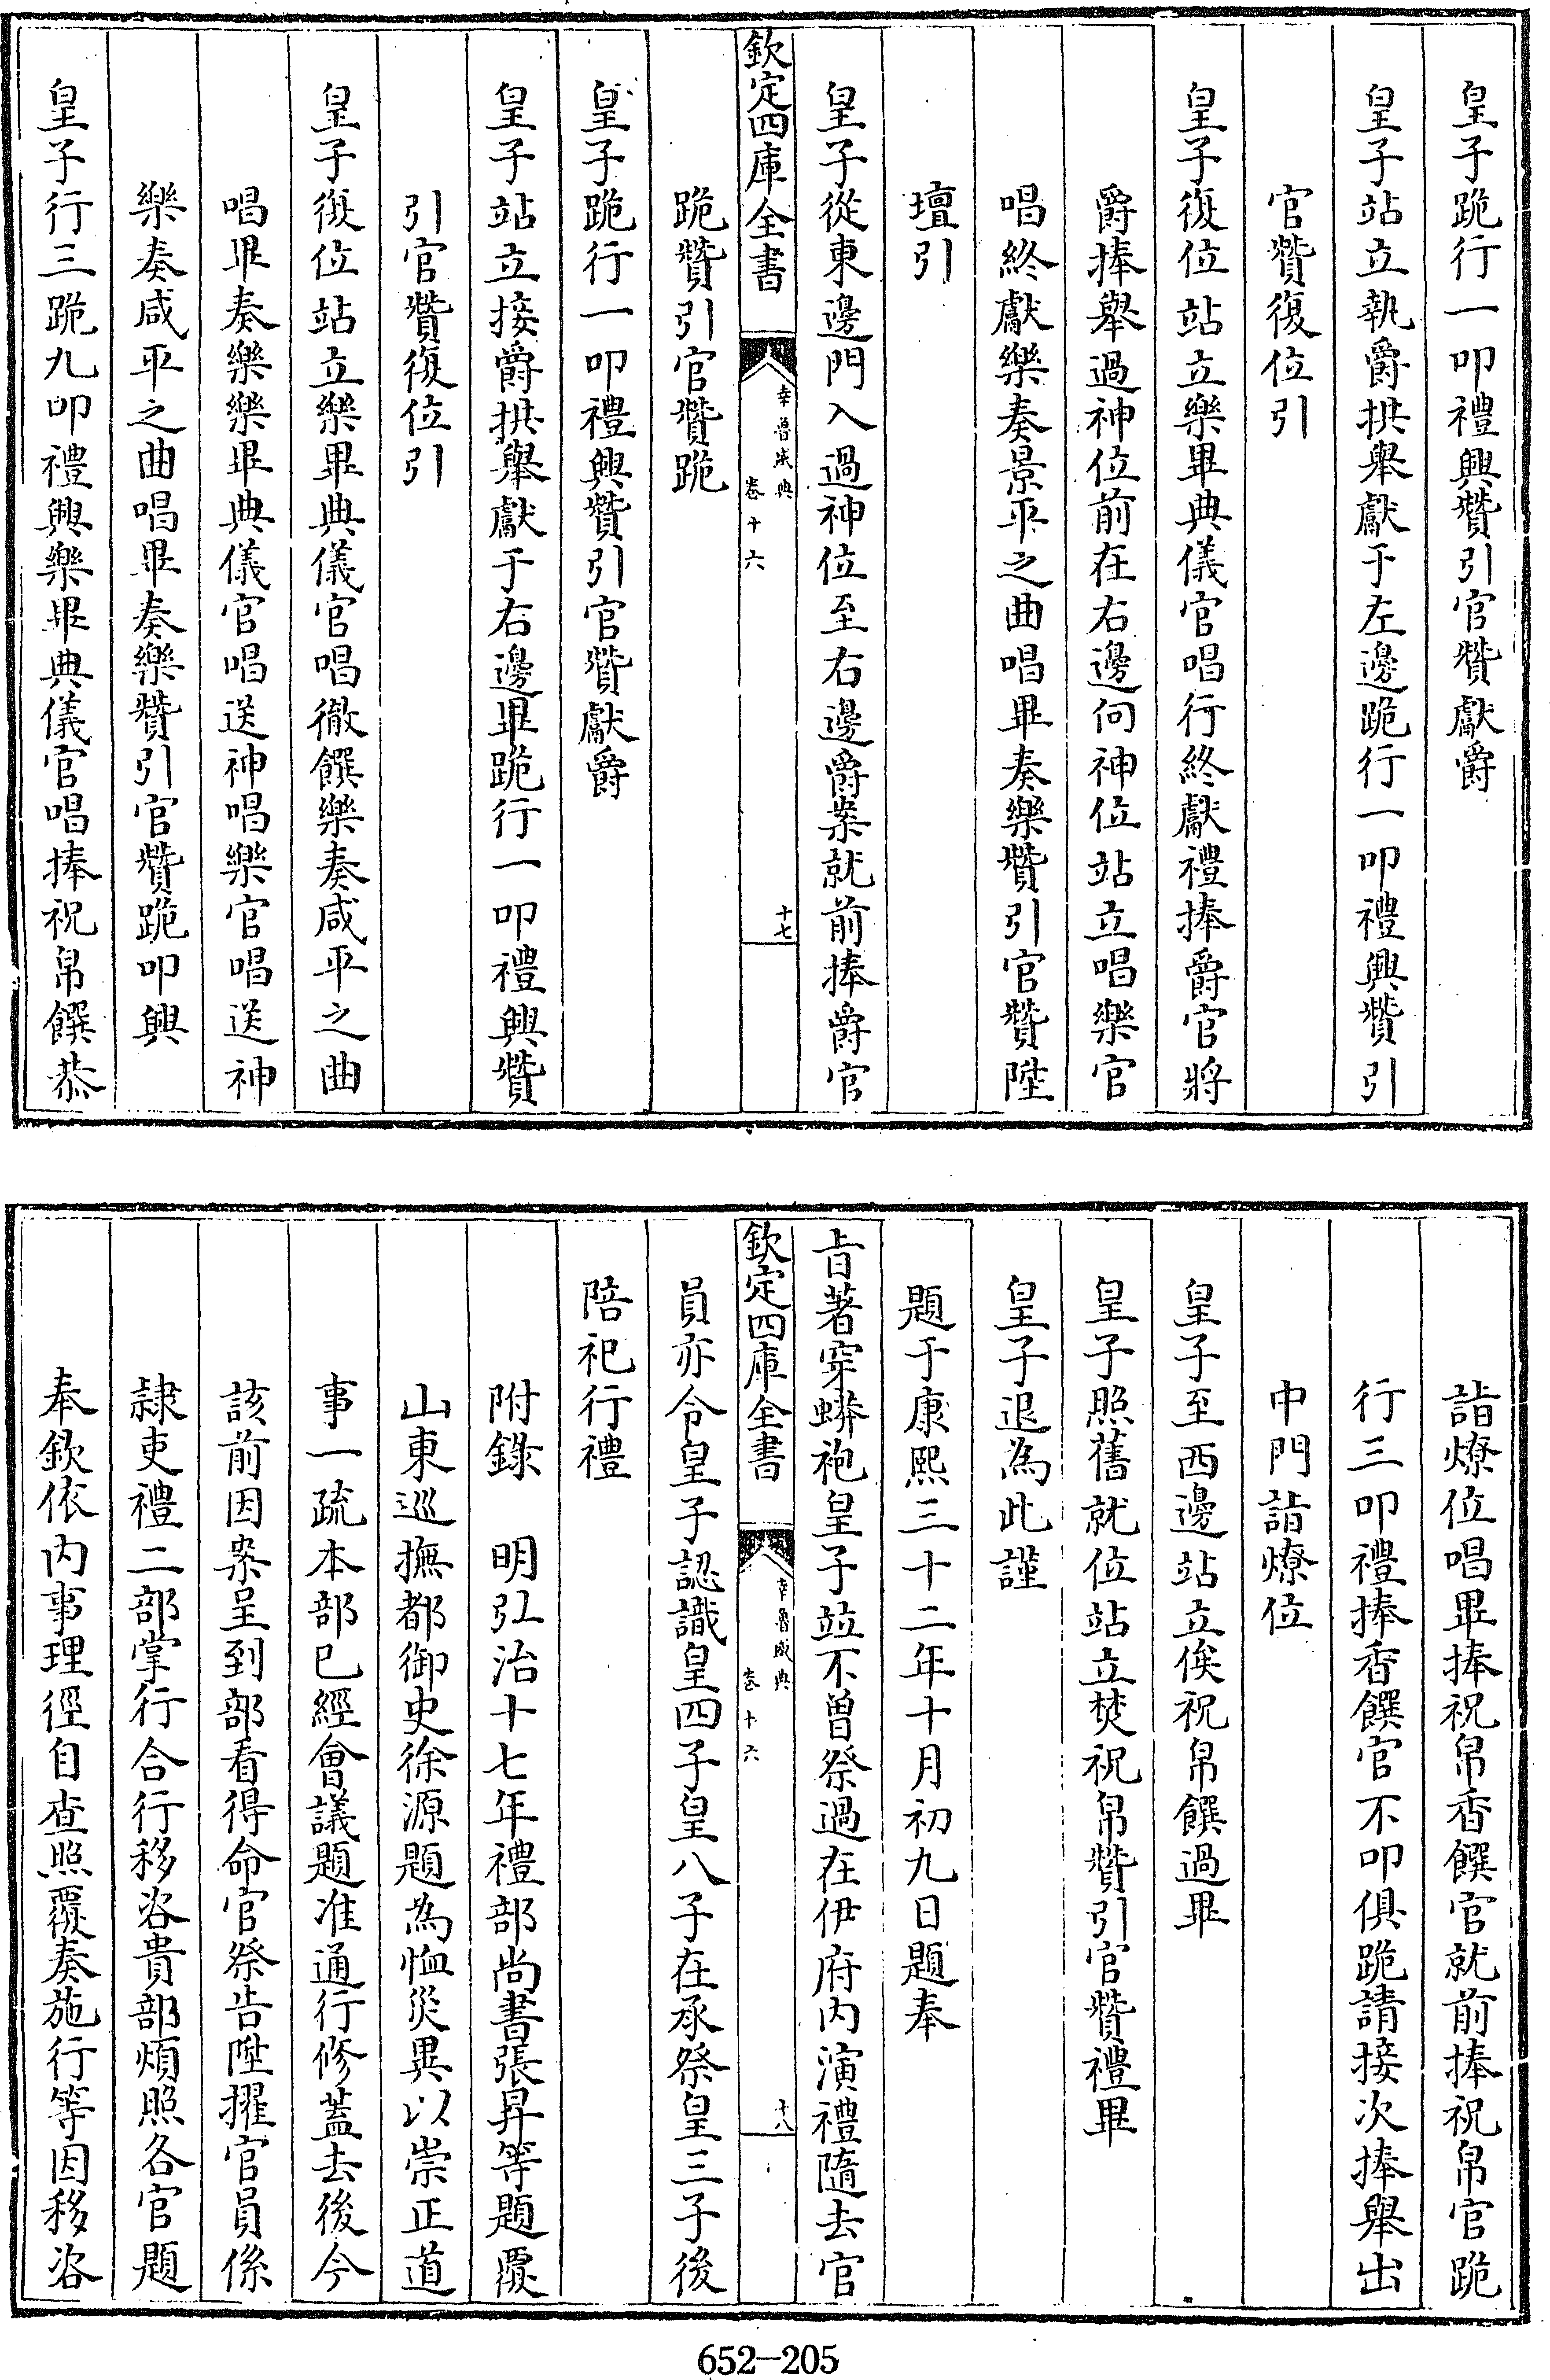 皇子跪行一叩禮興贊引官贊獻爵
皇子站立執爵拱舉獻于左邊跪行一叩禮興贊引
官贊復位引
皇子復位站立樂畢典儀官唱行終獻禮捧爵官將
爵捧舉過神位前在右邊向神位站立唱樂官
唱終獻樂奏景平之曲唱畢奏樂贊引官贊陞
壇引
皇子從東邊門入過神位至右邊爵案就前捧爵官
欽定四庫全書
幸魯盛典
卷十六
十七
跪贊引官贊跪
皇子跪行一叩禮興贊引官贊獻爵
皇子站立接爵拱舉獻于右邊畢跪行一叩禮興贊
引官贊復位引
皇子復位站立樂畢典儀官唱徹饌樂奏咸平之曲
唱畢奏樂樂畢典儀官唱送神唱樂官唱送神
樂奏咸平之曲唱畢奏樂贊引官贊跪叩興
皇子行三跪九叩禮興樂畢典儀官唱捧祝帛饌恭
詣燎位唱畢捧祝帛香饌官就前捧祝帛官跪
行三叩禮捧香饌官不叩俱跪請接次捧舉出
中門詣燎位
皇子至西邊站立俟祝帛饌過畢
皇子照舊就位站立焚祝帛贊引官贊禮畢
皇子退為此謹
題于康熙三十二年十月初九日題奉
旨著穿蟒袍皇子竝不曾祭過在伊府内演禮隨去官
欽定四庫全書
幸魯盛典
卷十六
十八
員亦令皇子認識皇四子皇八子在承祭皇三子後
陪祀行禮
附錄　明弘治十七年禮部尚書張昇等題覆
山東巡撫都御史徐源題為恤災異以崇正道
事一疏本部已經會議題准通行修蓋去後今
該前因案呈到部看得命官祭告陞擢官員係
隷吏禮二部掌行合行移咨貴部煩照各官題
奉欽依内事理徑自查照覆奏施行等因移咨
652—205